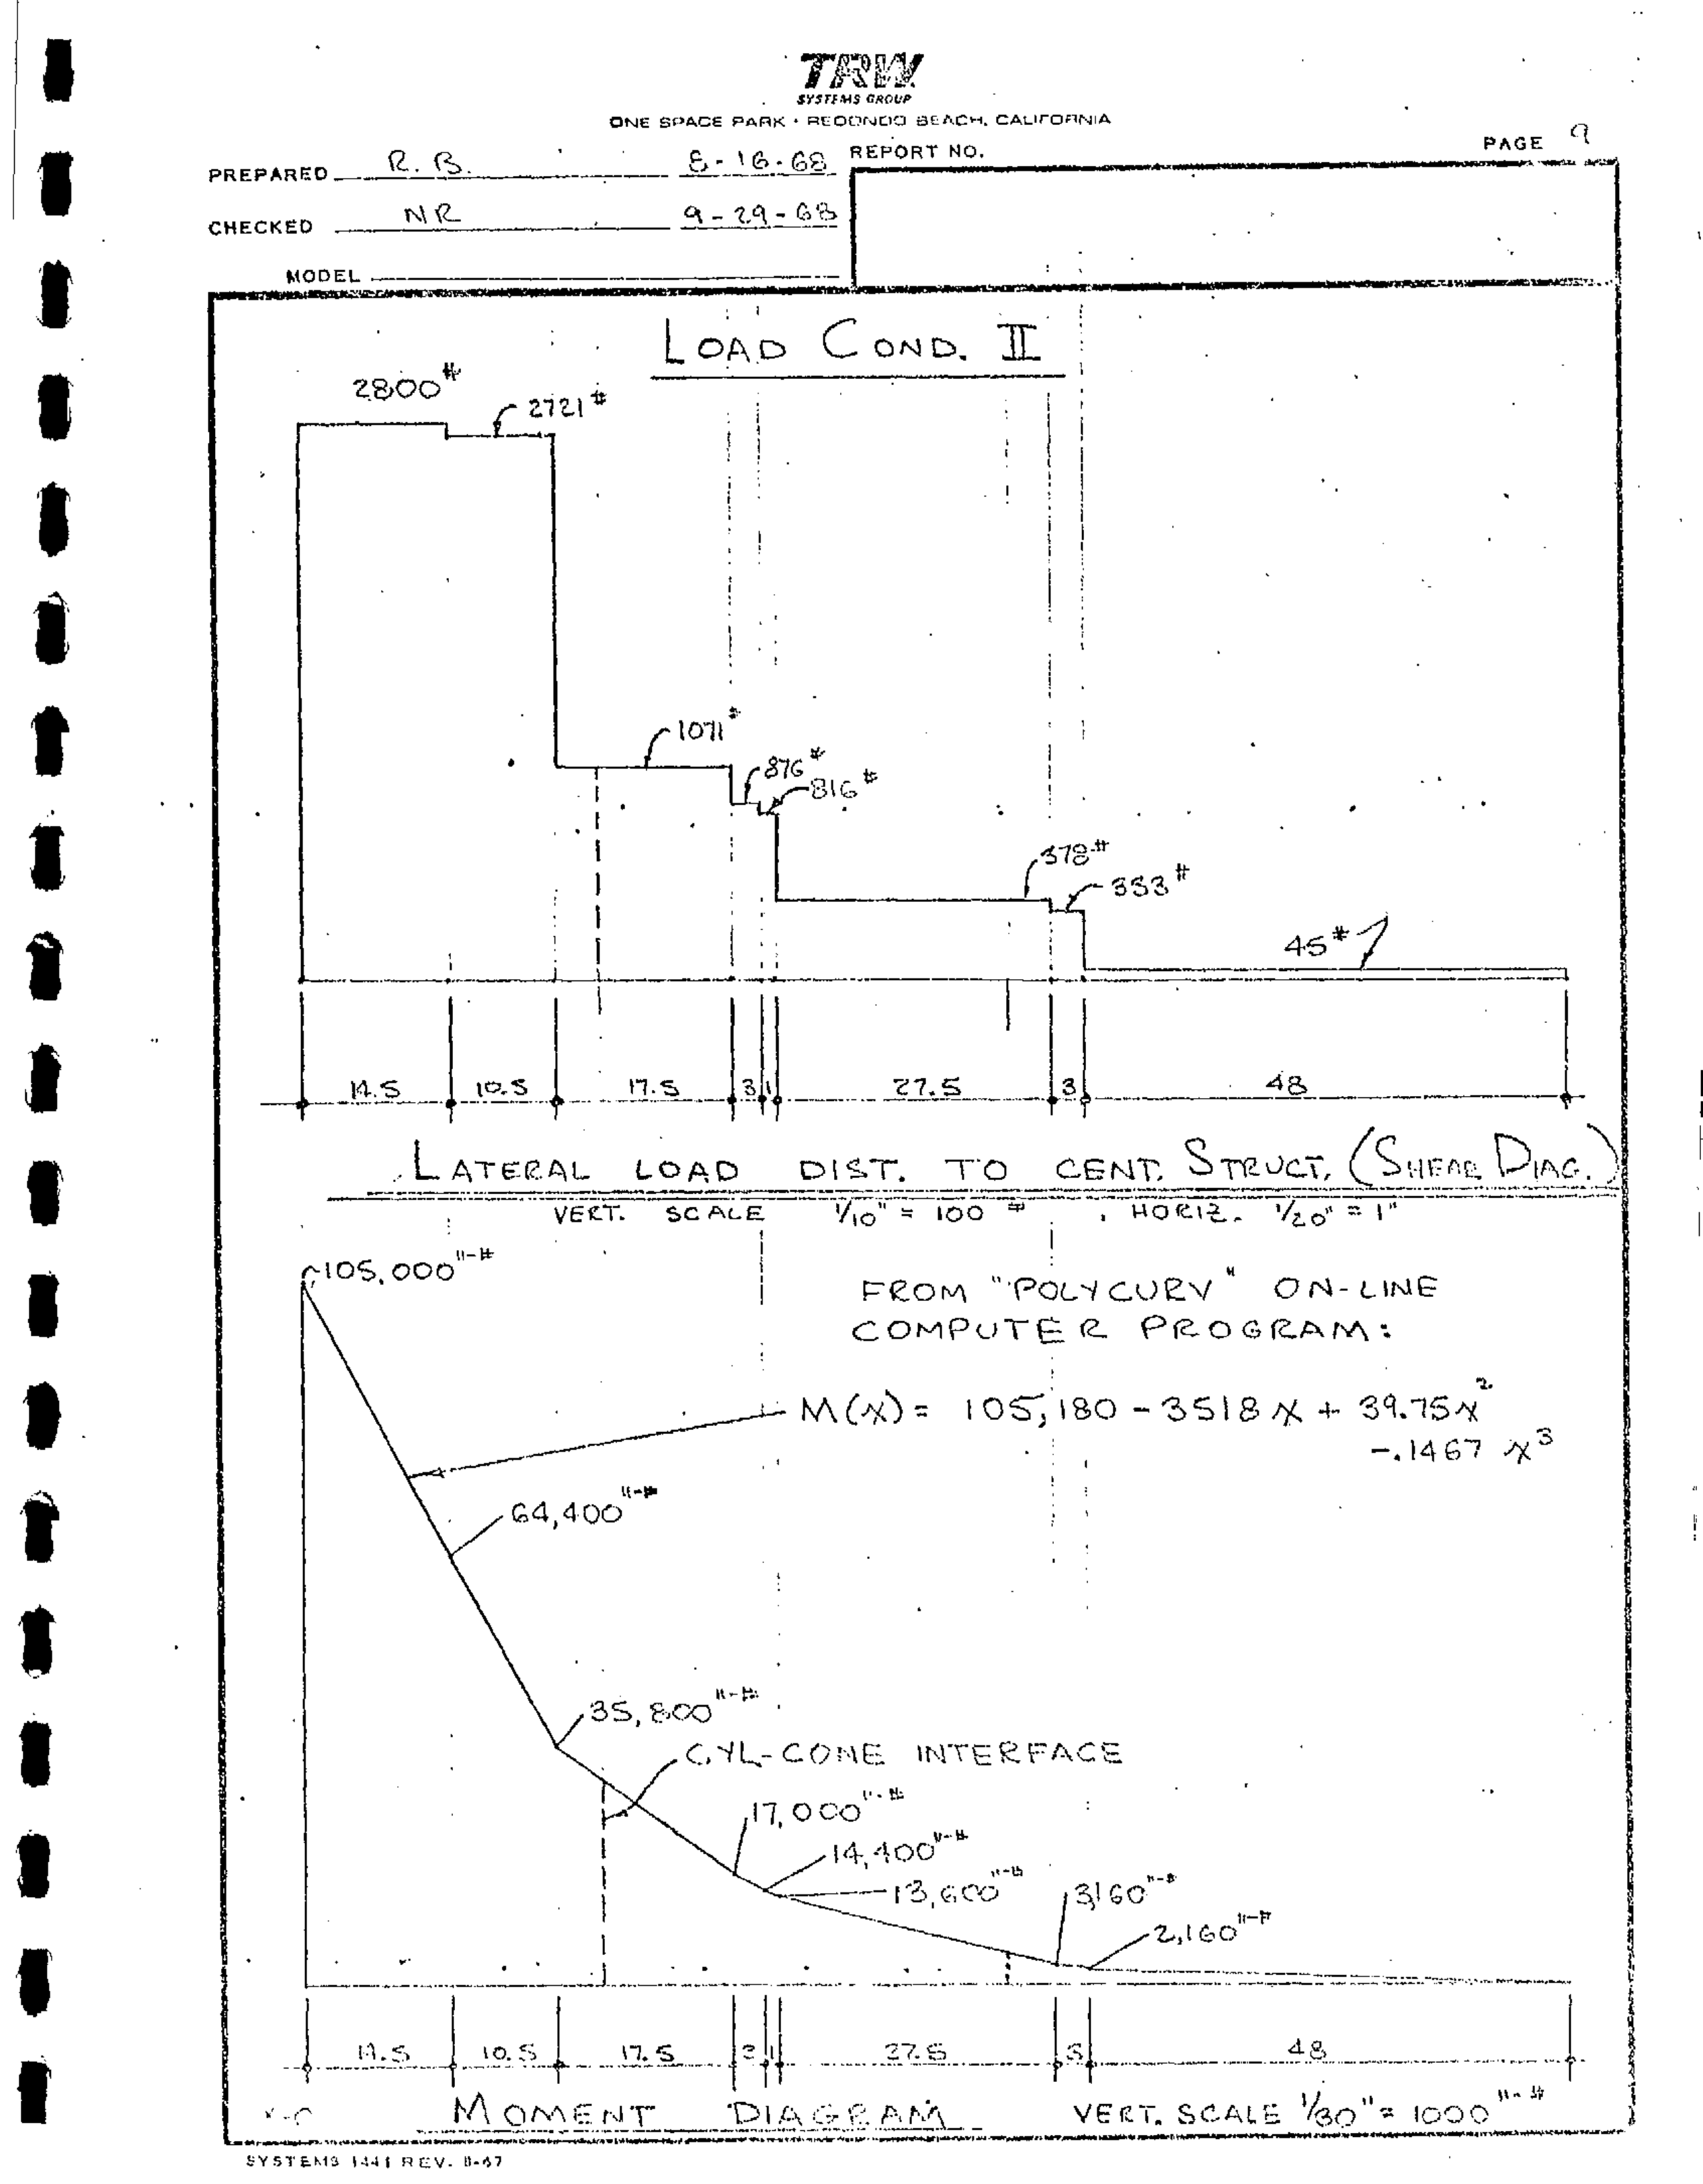 TRW
SYSTEMS GROUP
ONE SPACE PARK • REDONDO BEACH, CALIFORNIA
PREPARED R. B. 8-16-68 REPORT NO. PAGE 9
CHECKED NR 9-29-68
MODEL
LOAD COND. II
2800#
2721#
1071#
876#
816#
378#
333#
45#
14.5 10.5 17.5 3 1 27.5 3 48
LATERAL LOAD DIST. TO CENT. STRUCT. (SHEAR DIAG.)
VERT. SCALE 1/10" = 100 # , HORIZ. 1/20" = 1"
105,000"-#
FROM "POLYCURV" ON-LINE
COMPUTER PROGRAM:
M(X) = 105,180 - 3518 X + 39.75 X²
-.1467 X³
64,400"-#
35,800"-#
CYL-CONE INTERFACE
17,000"-#
14,400"-#
13,600"-#
3,160"-#
2,160"-#
14.5 10.5 17.5 3 1 27.5 3 48
MOMENT DIAGRAM VERT. SCALE 1/30" = 1000"-#
SYSTEMS 1441 REV. 8-67